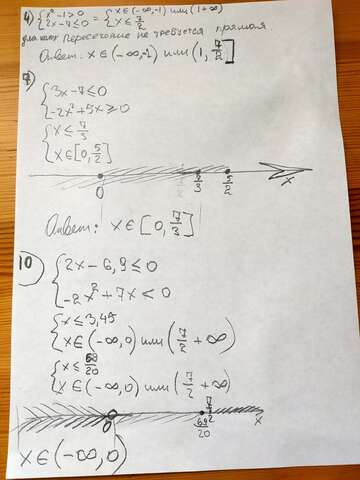 4) { x² - 1 > 0 = { x ∈ (-∞, -1) или (1 +∞)
{ 2x - 7 ≤ 0 { x ≤ 7/2
пересечение не требуется прямая
Ответ: x ∈ (-∞, -1) или (1, 7/2]
{ 3x - 7 ≤ 0
{ -2x² + 5x ≥ 0
{ x ≤ 7/3
{ x ∈ [0, 5/2]
0 7/3 5/2 x
Ответ: x ∈ [0, 7/3]
10 { 2x - 6,9 ≤ 0
{ -2x² + 7x < 0
{ x ≤ 3,45
{ x ∈ (-∞, 0) или (7/2 +∞)
{ x ≤ 69/20
{ x ∈ (-∞, 0) или (7/2 +∞)
0 69/20 7/2 x
x ∈ (-∞, 0)